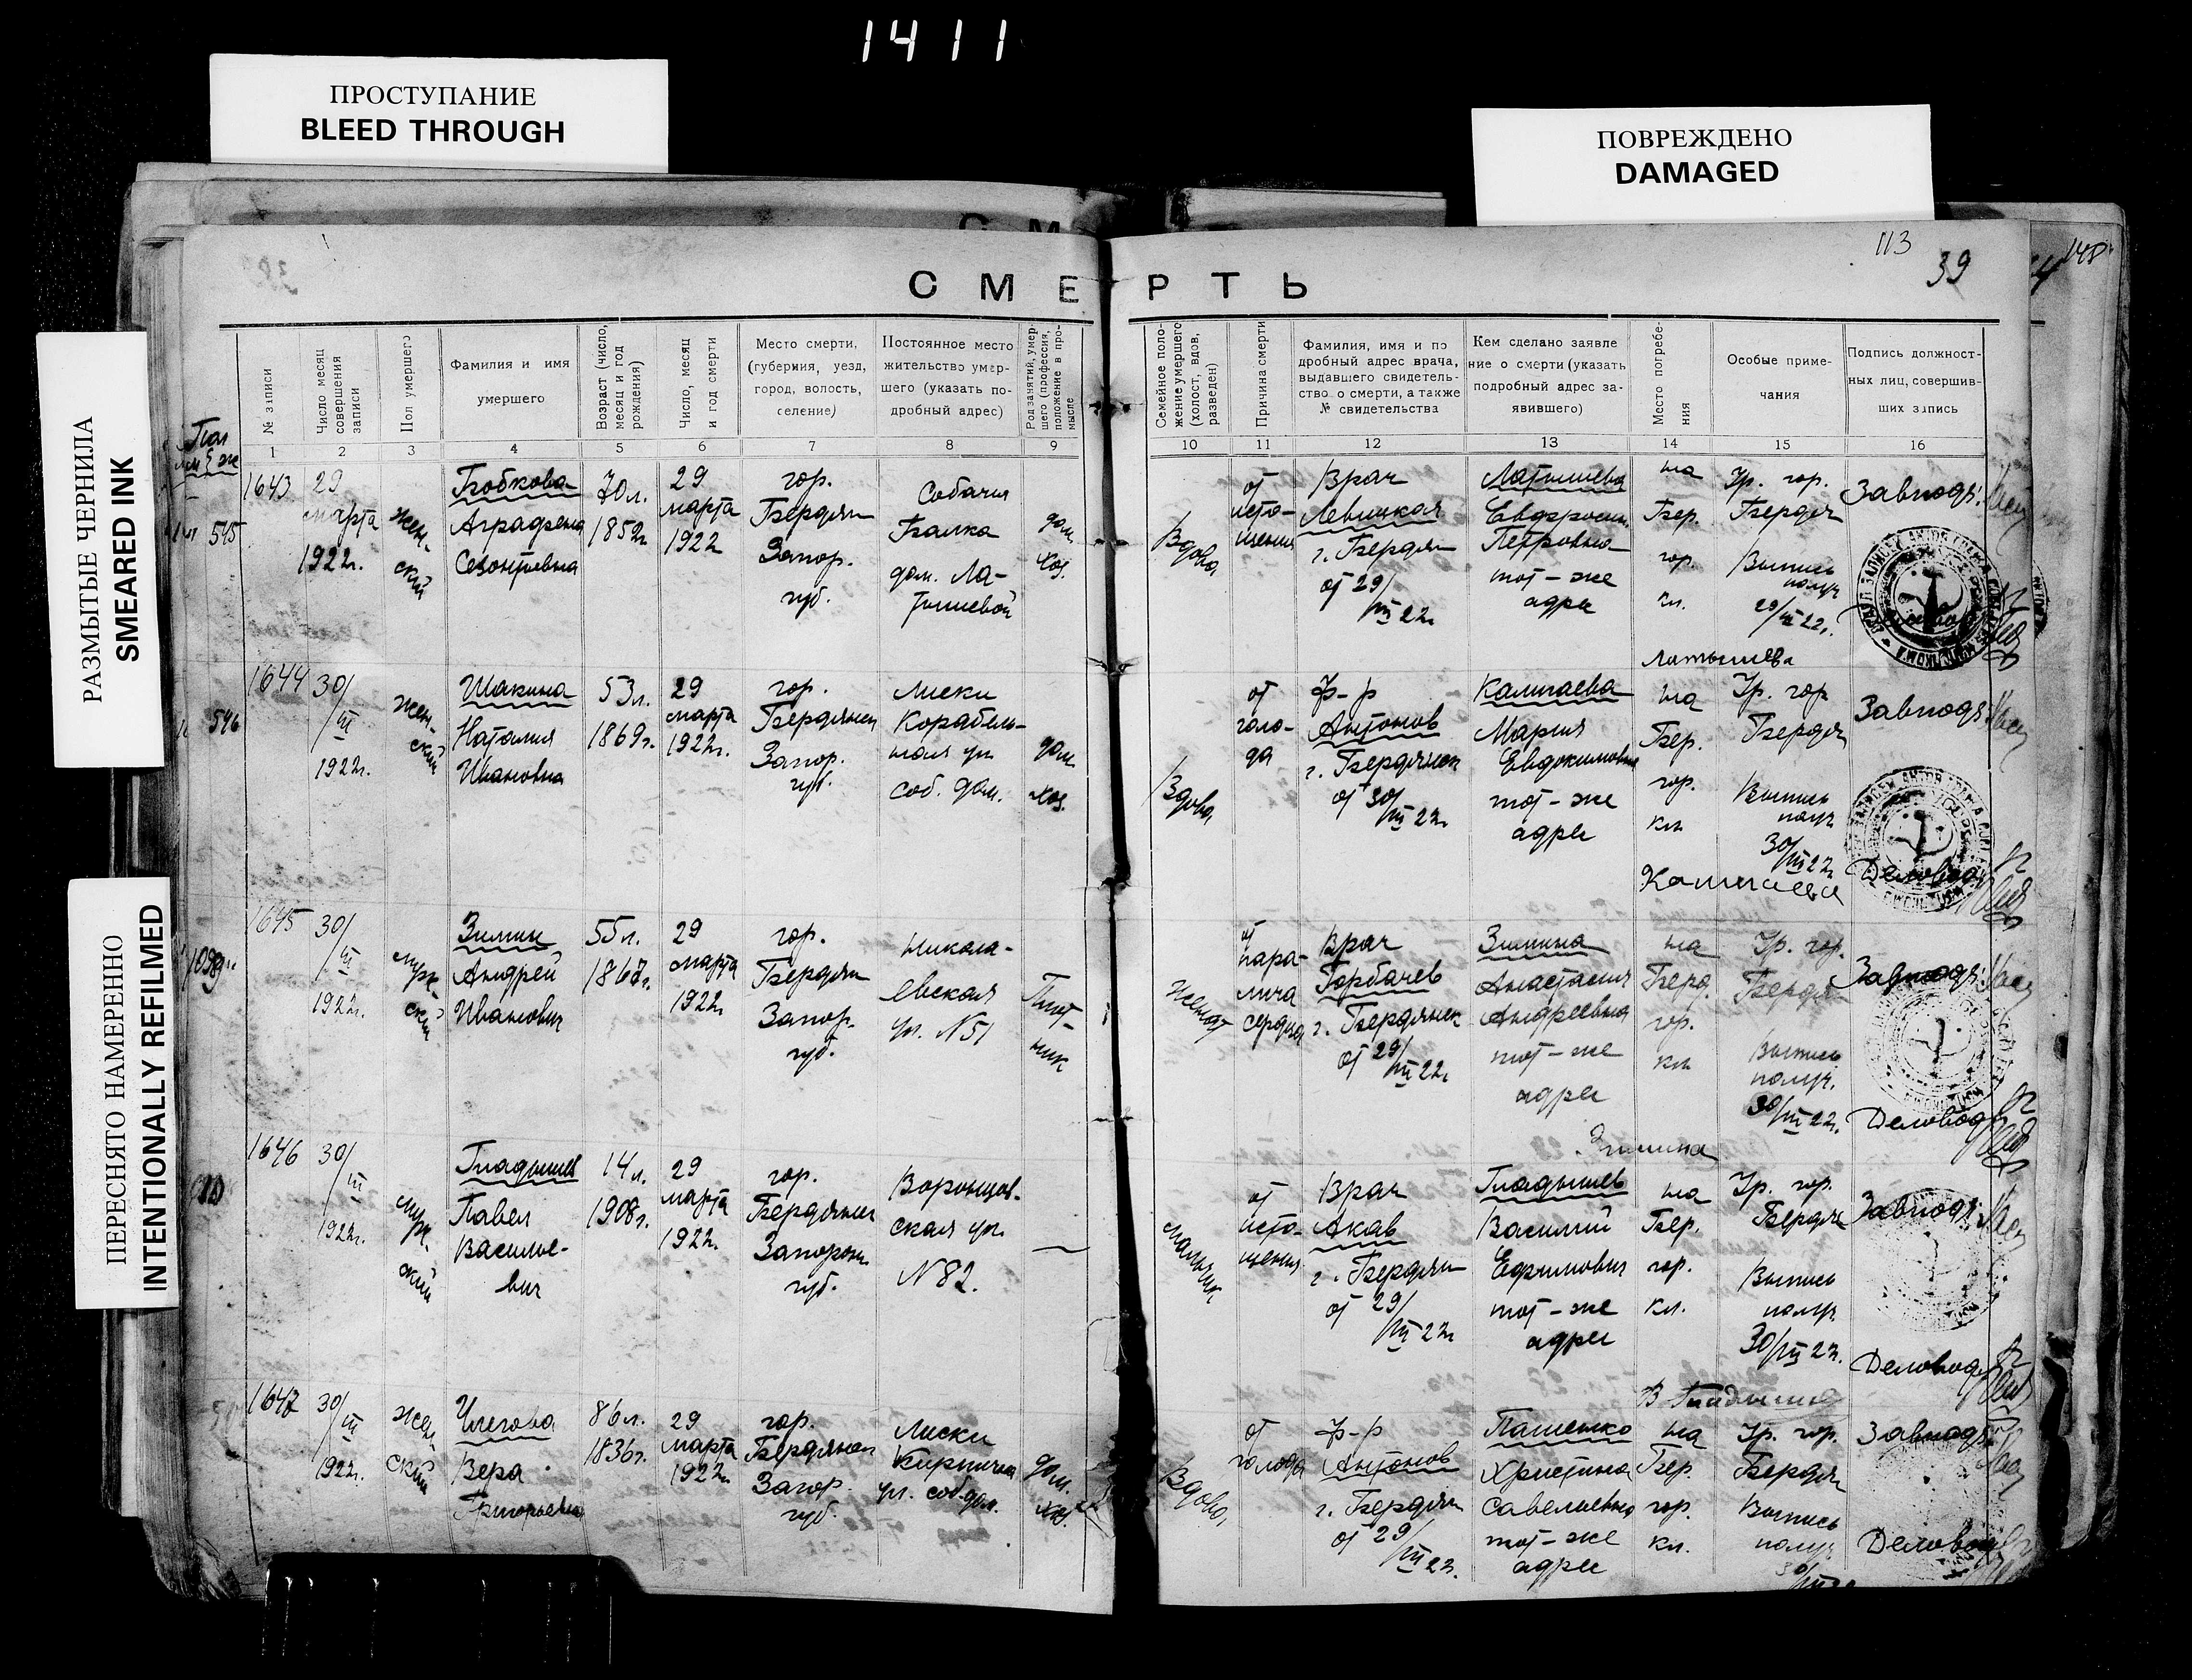 1411
ПРОСТУПАНИЕ
BLEED THROUGH
ПОВРЕЖДЕНО
DAMAGED
РАЗМЫТЫЕ ЧЕРНИЛА
SMEARED INK
ПЕРЕСНЯТО НАМЕРЕННО
INTENTIONALLY REFILMED
113
39
148
СМЕРТЬ
№ записи
Число месяц
совершения
записи
Пол умершего
Фамилия и имя
умершего
Возраст (число,
месяц и год
рождения)
Число, месяц
и год смерти
Место смерти,
(губерния, уезд,
город, волость,
селение)
Постоянное место
жительство умер-
шего (указать по-
дробный адрес)
Род занятий, умер-
шего (профессия,
положение в про-
мысле
Семейное поло-
жение умершего
(холост, вдов,
разведен)
Причина смерти
Фамилия, имя и по
дробный адрес врача,
выдавшего свидетель-
ство о смерти, а также
№ свидетельства
Кем сделано заявле
ние о смерти (указать
подробный адрес за-
явившего)
Место погребе-
ния
Особые приме-
чания
Подпись должност-
ных лиц, совершив-
ших запись
1 2 3 4 5 6 7 8 9 10 11 12 13 14 15 16
1643
545
29
марта
1922г.
жен-
ский
Аграфена
70л.
1852г
29
марта
1922
гор.
Бердян
Запор.
губ.
Собачия
Балка
дом. Ла-
тышевой
дом.
хоз.
Вдова
от
исто-
щения
Врач
Левицкая
г. Бердян
от 29/
III 22г.
Латышева
Евдросин.
Петровна
тот-же
адрес
на
Бер.
гор.
кл.
Гр. гор.
Бердян
Выпись
получ
29/III 22г.
Завподъ:
Латышева
1644
546
30/
III
1922г.
жен-
ский
Шакина
Наталия
Ивановна
53л.
1869г.
29
марта
1922г.
гор.
Бердянск
Запор.
губ.
Лиски
Корабель-
ная ул
соб. дом.
дом.
хоз.
Вдова
от
голо-
да
ф-р
Антонов
г. Бердянск
от 30/
III 22г.
Калигаева
Мария
Евдокимовна
тот-же
адрес
на
Бер.
гор.
кл
Гр. гор
Бердян
Выпись
получ
30/III 22г.
Завподъ:
Деловод
1645
30/
III
1922г.
муж-
ский
Зимин
Андрей
Иванович
55л.
1867г.
29
марта
1922г
гор.
Бердян
Запор.
губ.
Никола-
евская
ул. N51
Плот-
ник
женат
от
пара-
лича
сердца
Врач
Горбачев
г. Бердянск
от 29/
III 22г
Зимина
Анастасия
Андреевна
тот-же
адрес
на
Берд.
гор.
кл
Гр. гор.
Бердян
Выпись
получ.
30/III 22г.
Завподъ:
Деловод
Зимина
1646
30/
III
1922г.
муж-
ский
Гладышев
Павел
Василье-
вич
14л.
1908г.
29
марта
1922г.
гор.
Бердянск
Запорож
губ.
Воронцов-
ская ул.
N 82.
—
мальчик
от
исто-
щения
Врач
Акав
г. Бердян
от 29/
III 22г
Гладышев
Василий
Ефимович
тот-же
адрес
на
Бер.
гор.
кл.
Гр. гор.
Бердян
Выпись
получ
30/III 22г.
Завподъ:
Деловод
1647
30/
III
1922г.
жен
ский
Вера
Григорьевна
86л.
1836г.
29
марта
1922г.
гор.
Бердянск
Запор.
губ.
Лиски
Кирпичная
ул. соб. дом.
дом.
хоз.
Вдова
от
голода
ф-р
Антонов
г. Бердян
от 29/
III 22.
Пашенко
Христина
Савельевна
тот-же
адрес
на
Бер.
гор.
кл.
Гр. гор.
Бердян
Выпись
получ
30/
Завподъ:
Деловод